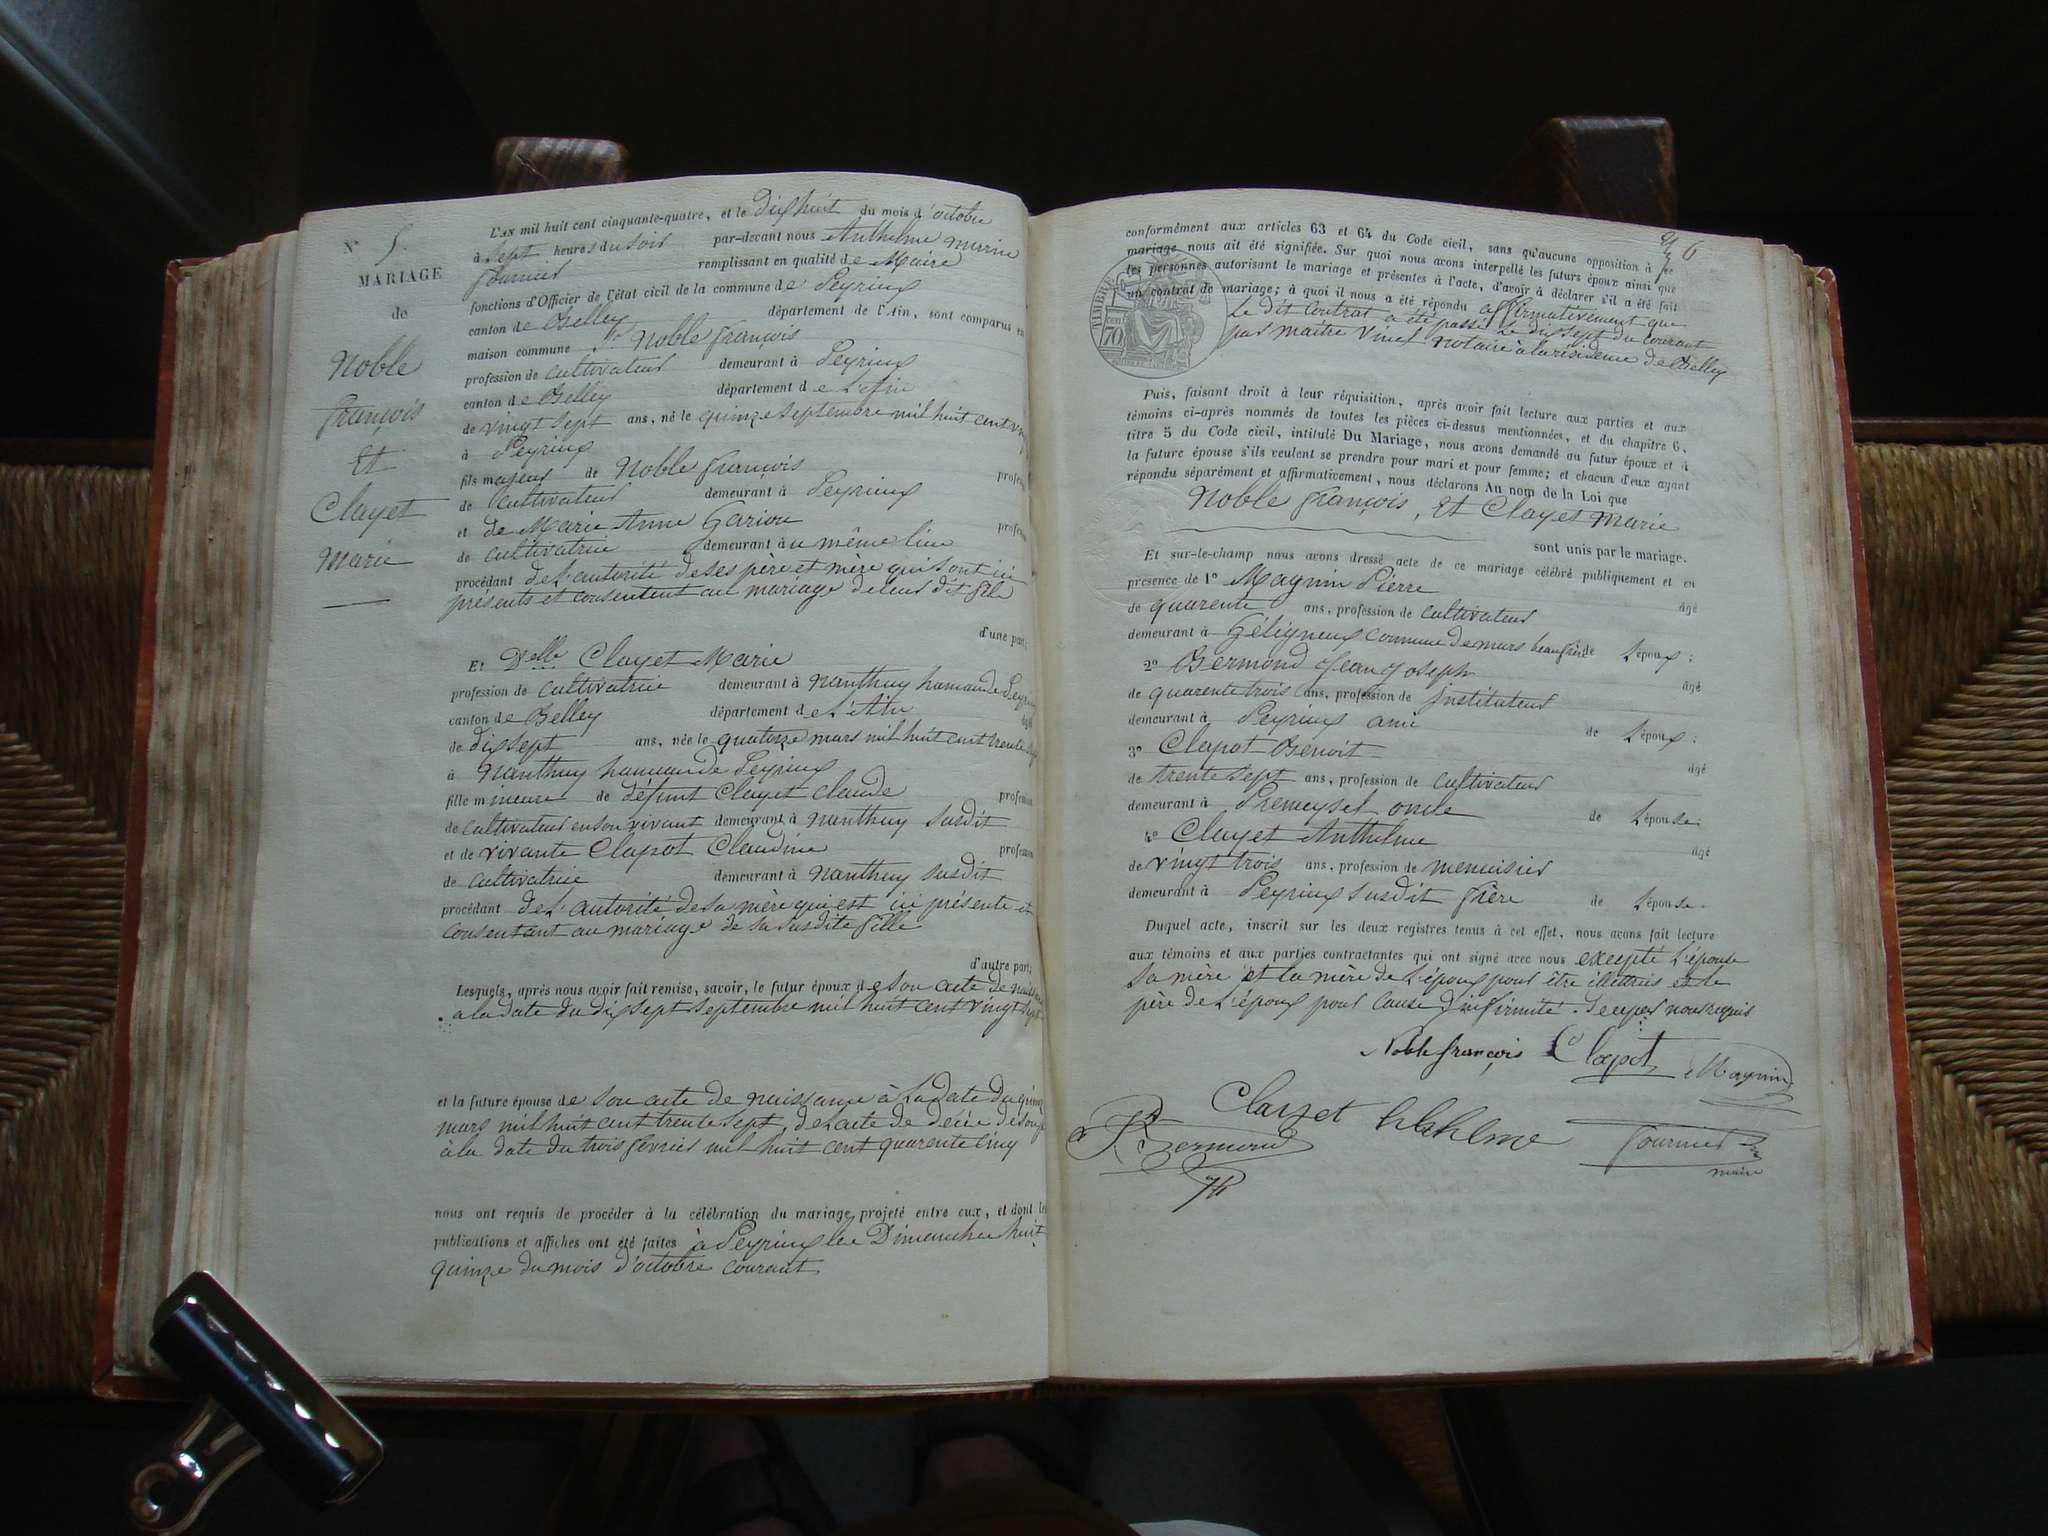 N° 5
MARIAGE
de
Noble
françois
Et
Clayet
Marie
L'AN mil huit cent cinquante-quatre, et le dix huit du mois d'octobre
à sept heures du soir par-devant nous Anthelme Marin
fournier remplissant en qualité de Maire
fonctions d'Officier de l'état civil de la commune de Peyrieux
canton de Belley département de l'Ain, sont comparus en
maison commune Sr Noble françois
profession de cultivateur demeurant à Peyrieux
canton de Belley département de L'Ain
de vingt sept ans, né le quinze septembre mil huit cent
à Peyrieux
fils majeur de Noble françois profession
de Cultivateur demeurant à Peyrieux
et de Marie Anne profession
de cultivatrice demeurant à u même lieu
procédant de L'autorité de ses père et mère qui sont ici
présents et consentent au mariage de leur dit fils
d'une part;
Et Delle Clayet Marie
profession de cultivatrice demeurant à Nanthuy hamau de
canton de Belley département de L'Ain
de dix sept ans, née le quatorze mars mil huit cent trente
à Nanthuy hamau de Peyrieux
fille mineure de défunt Clayet claude profession
de cultivateur en son vivant demeurant à Nanthuy susdit
et de vivante Clapot Claudine profession
de cultivatrice demeurant à Nanthuy susdit
procédant de L'autorité de sa mère qui est ici présente et
consentant au mariage de sa susdite fille
d'autre part;
Lesquels, après nous avoir fait remise, savoir, le futur époux de son acte de
a la date du dix sept septembre mil huit cent vingt sept
et la future épouse de son acte de naissance à La date du
mars mil huit cent trente sept, de L'acte de décès de son
à la date du trois fevrier mil huit cent quarente cinq
nous ont requis de procéder à la célébration du mariage projeté entre eux, et dont les
publications et affiches ont été faites à Peyrieux les Dimanches huit
quinze du mois d'octobre courant
6
conformément aux articles 63 et 64 du Code civil, sans qu'aucune opposition à ce
mariage nous ait été signifiée. Sur quoi nous avons interpellé les futurs époux ainsi que
les personnes autorisant le mariage et présentes à l'acte, d'avoir à déclarer s'il a été fait
un contrat de mariage; à quoi il nous a été répondu affirmativement que
Le dit contrat a été passé Le dix sept du courant
par maitre Vinet notaire à la résidence de Belley
TIMBRE
70
Puis, faisant droit à leur réquisition, après avoir fait lecture aux parties et aux
témoins ci-après nommés de toutes les pièces ci-dessus mentionnées, et du chapitre 6,
titre 5 du Code civil, intitulé Du Mariage, nous avons demandé au futur époux et à
la future épouse s'ils veulent se prendre pour mari et pour femme; et chacun d'eux ayant
répondu séparément et affirmativement, nous déclarons Au nom de la Loi que
Noble françois, Et Clayet Marie
sont unis par le mariage.
Et sur-le-champ nous avons dressé acte de ce mariage célébré publiquement et en
présence de 1° Magnin Pierre âgé
de quarente ans, profession de cultivateur
demeurant à Gélignieux commune de murs beaufrère de L'époux;
2° Bermond Jean Joseph âgé
de quarente trois ans, profession de instituteur
demeurant à Peyrieux ami de L'époux;
3° Clapot Benoit âgé
de trente sept ans, profession de cultivateur
demeurant à Premeysel oncle de L'épouse;
4° Clayet Anthelme âgé
de vingt trois ans, profession de menuisier
demeurant à Peyrieux susdit frère de L'épouse.
Duquel acte, inscrit sur les deux registres tenus à cet effet, nous avons fait lecture
aux témoins et aux parties contractantes qui ont signé avec nous excepté L'épouse
sa mère et la mère de L'époux pour être illettrés et le
père de L'époux pour cause d'infirmité. de ce par nous requis
Noble françois Clapot Magnin
Clayet Anthelme
Bermond fournier
maire